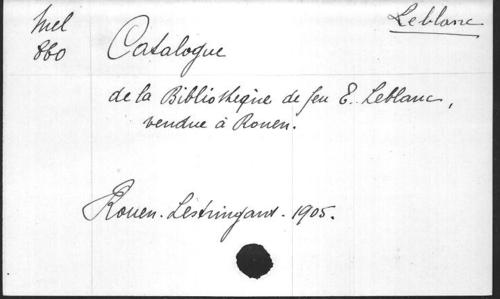 Mel
860
Leblanc
Catalogue
de la Bibliothèque de feu E. Leblanc,
vendue à Rouen.
Rouen. Lestringant. 1905.